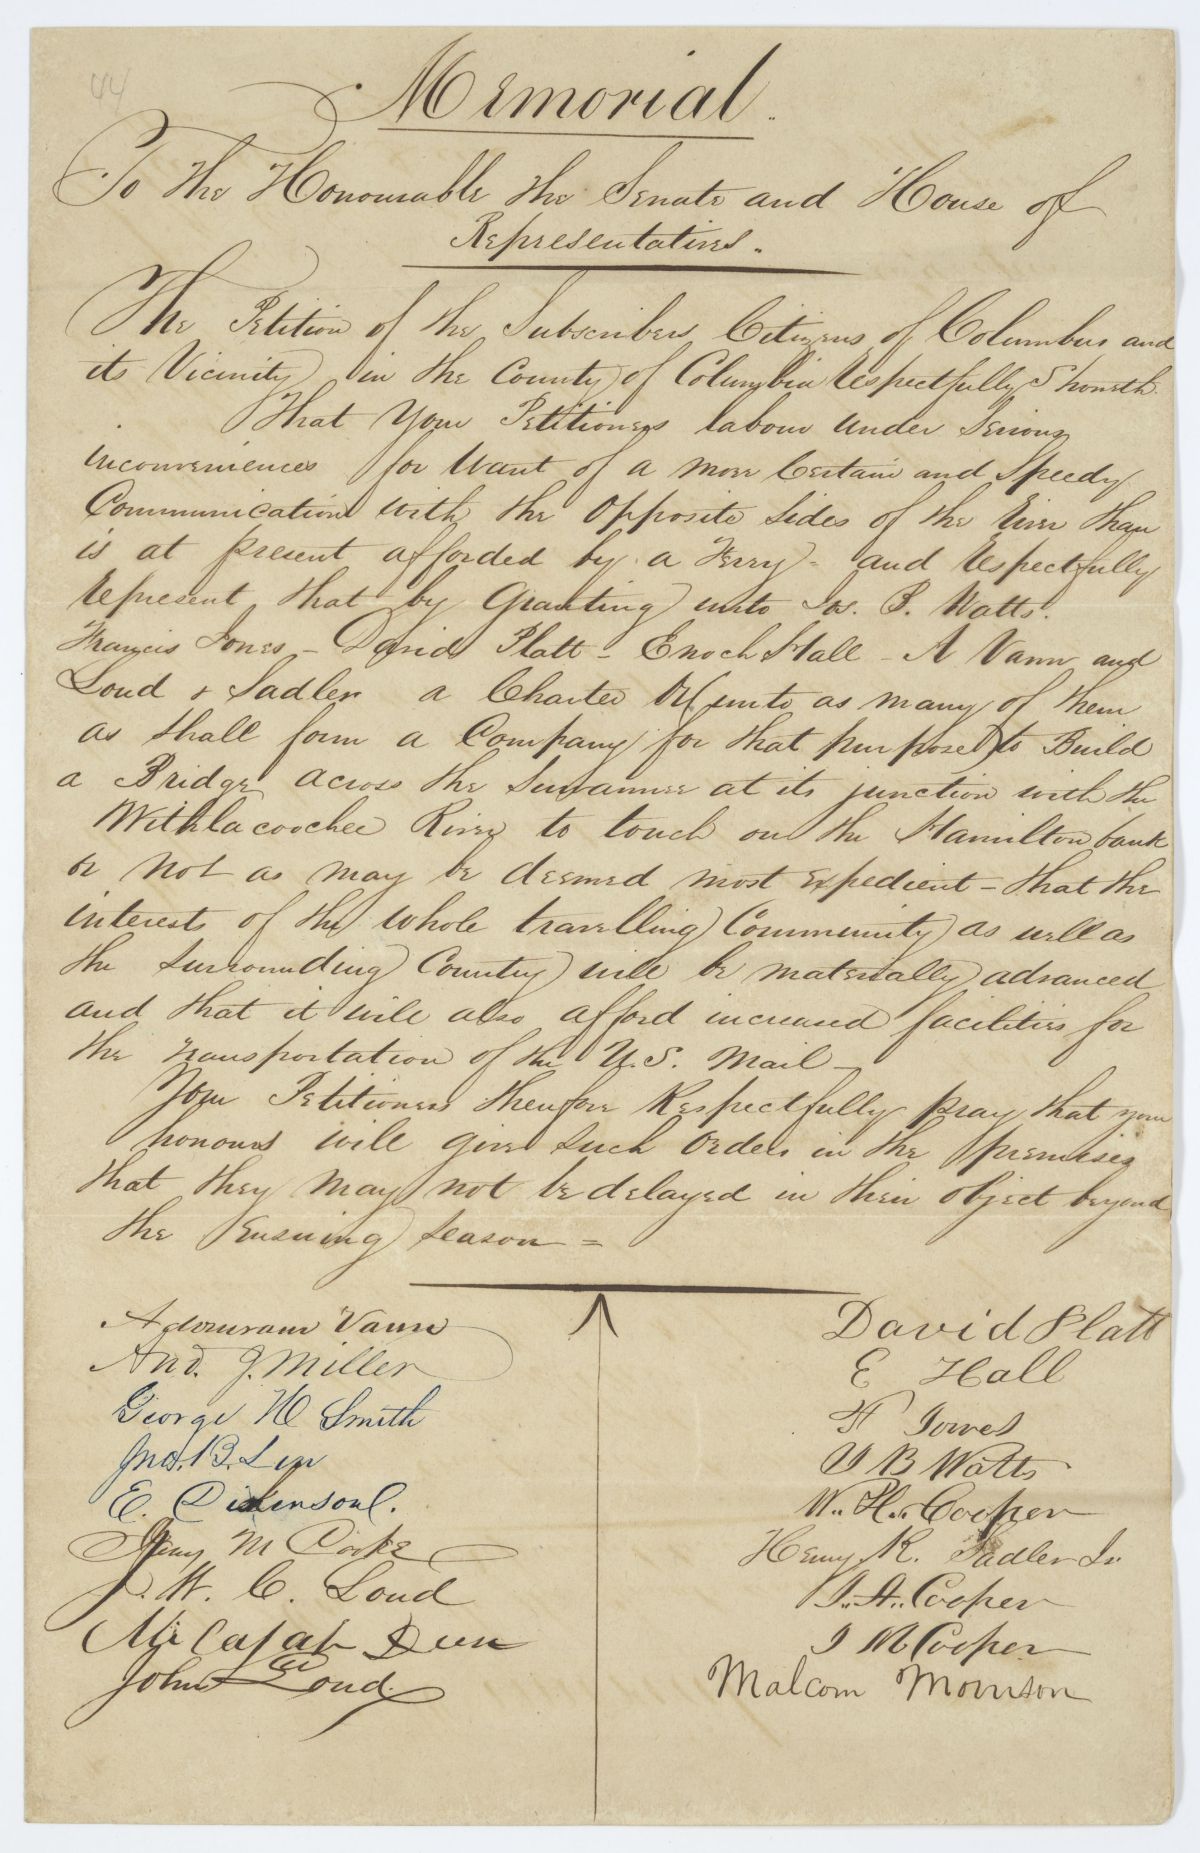 44
Memorial.
To the Honourable the Senate and House of
Representatives.
The Petition of the Subscribers Citizens of Columbus and
its Vicinity in the County of Columbia respectfully Shoneth
That Your Petitioners labour under Serious
inconveniences for want of a more Certain and Speedy
Communication with the Opposite Sides of the River than
is at present afforded by a Ferry - and respectfully
represent that by Granting unto B. Watts.
Francis Jones - David Platt - Enoch Hall - A Vann and
Loud & Sadler a Charter Or (unto as many of them
as shall form a Company for that purpose) to Build
a Bridge across the Suwannee at its junction with the
Withlacoochee River to touch on the Hamilton bank
or not as may be deemed most expedient - that the
interests of the whole travelling Community as well as
the Surrounding Country will be materially advanced
and that it will also afford increased facilities for
the transportation of the U.S. Mail -
Your Petitioners therefore Respectfully pray that your
honours will give such Orders in the premises
that they may not be delayed in their object beyond
the Ensuing season =
Adoniram Vann
And. J. Miller
George W Smith
Jno. B. Lee
E. Dickenson
M Cooke
W. C. Loud
Micajah Deen
John Loud
David Platt
E Hall
F Jones
B Watts
W. H. Cooper
Henry R. Sadler Jr
J. A. Cooper
J M Cooper
Malcom Morrison